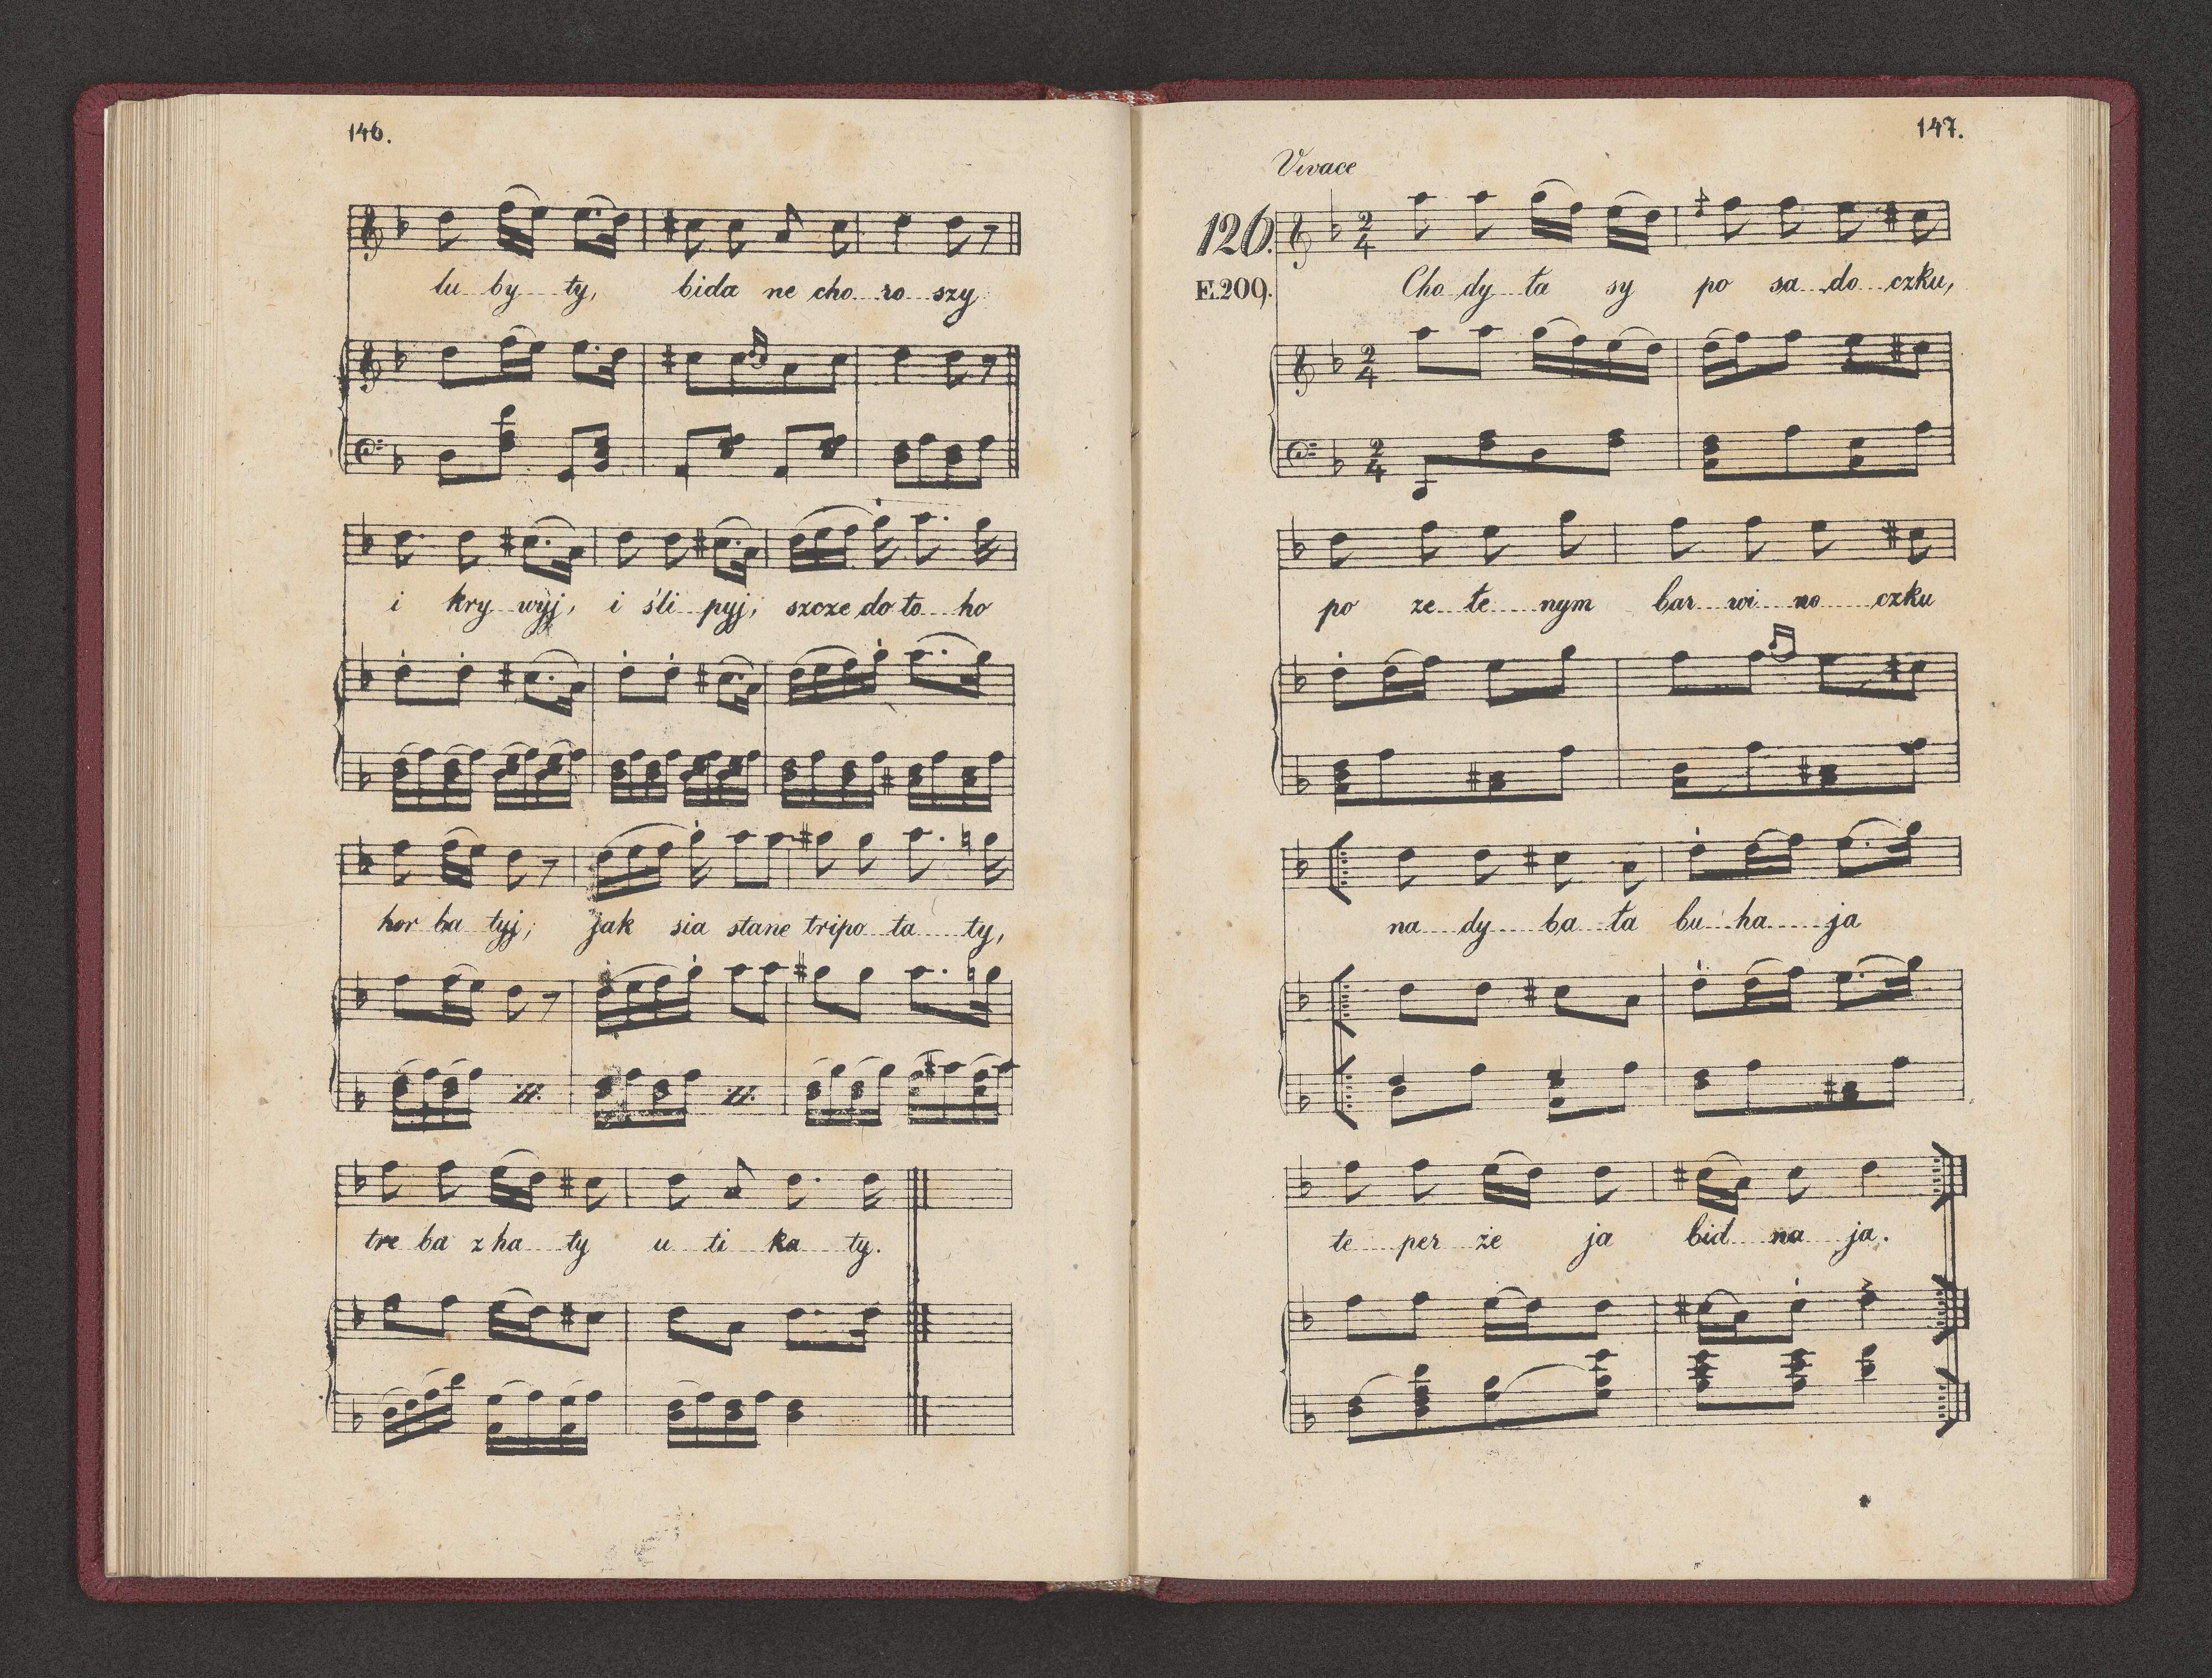 146.
lu by ty, bida ne cho ro szy
i kry wyj, i śli pyj, szcze do to ho
hor ba tyj; jak sia stane tripo ta ty,
tre ba z ha ty u ti ka ty.
147.
Vivace
126.
2 4
F.209.
Cho dy ła sy po sa do czku,
2 4
2 4
po ze łe nym bar wi no czku
na dy ba ła bu ha ja
te per że ja bid na ja.